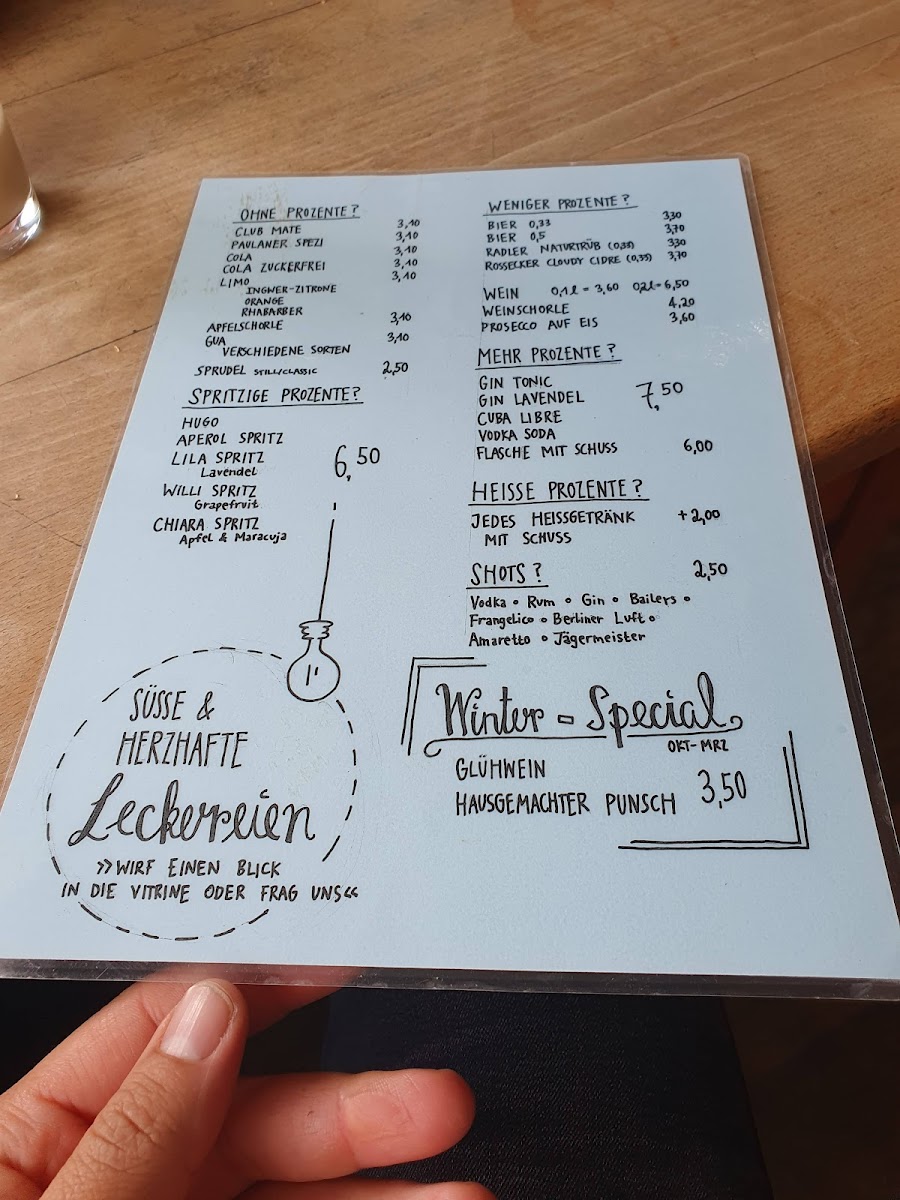 OHNE PROZENTE?
CLUB MATE 3,10
PAULANER SPEZI 3,10
COLA 3,10
COLA ZUCKERFREI 3,10
LIMO 3,10
INGWER-ZITRONE
ORANGE
RHABARBER
APFELSCHORLE 3,10
GUA 3,10
VERSCHIEDENE SORTEN
SPRUDEL STILL/CLASSIC 2,50
SPRITZIGE PROZENTE?
HUGO
APEROL SPRITZ
LILA SPRITZ 6,50
Lavendel
WILLI SPRITZ
Grapefruit
CHIARA SPRITZ
Apfel & Maracuja
SÜSSE &
HERZHAFTE
Leckereien
»WIRF EINEN BLICK
IN DIE VITRINE ODER FRAG UNS«
WENIGER PROZENTE?
BIER 0,33 3,30
BIER 0,5 3,70
RADLER NATURTRÜB (0,33) 3,30
ROSSECKER CLOUDY CIDRE (0,33) 3,70
WEIN 0,1l = 3,60 0,2l = 6,50
WEINSCHORLE 4,20
PROSECCO AUF EIS 3,60
MEHR PROZENTE?
GIN TONIC
GIN LAVENDEL 7,50
CUBA LIBRE
VODKA SODA
FLASCHE MIT SCHUSS 6,00
HEISSE PROZENTE?
JEDES HEISSGETRÄNK +2,00
MIT SCHUSS
SHOTS? 2,50
Vodka o Rum o Gin o Bailers o
Frangelico o Berliner Luft o
Amaretto o Jägermeister
Winter-Special
OKT-MRZ
GLÜHWEIN
HAUSGEMACHTER PUNSCH 3,50